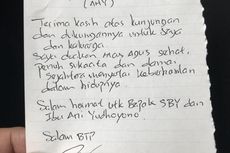 (AHY)
Terima kasih atas kunjungan
dan dikungannya untuk saya
dan keluarga.
Saya doakan Mas Agus sehat,
penuh sukacita dan damai,
Sejahtera menyertai keberhasilan
dalam hidupnya.
Salam hormat utk Bapak SBY dan
Ibu Ani Yudhoyono.
Salam BTP